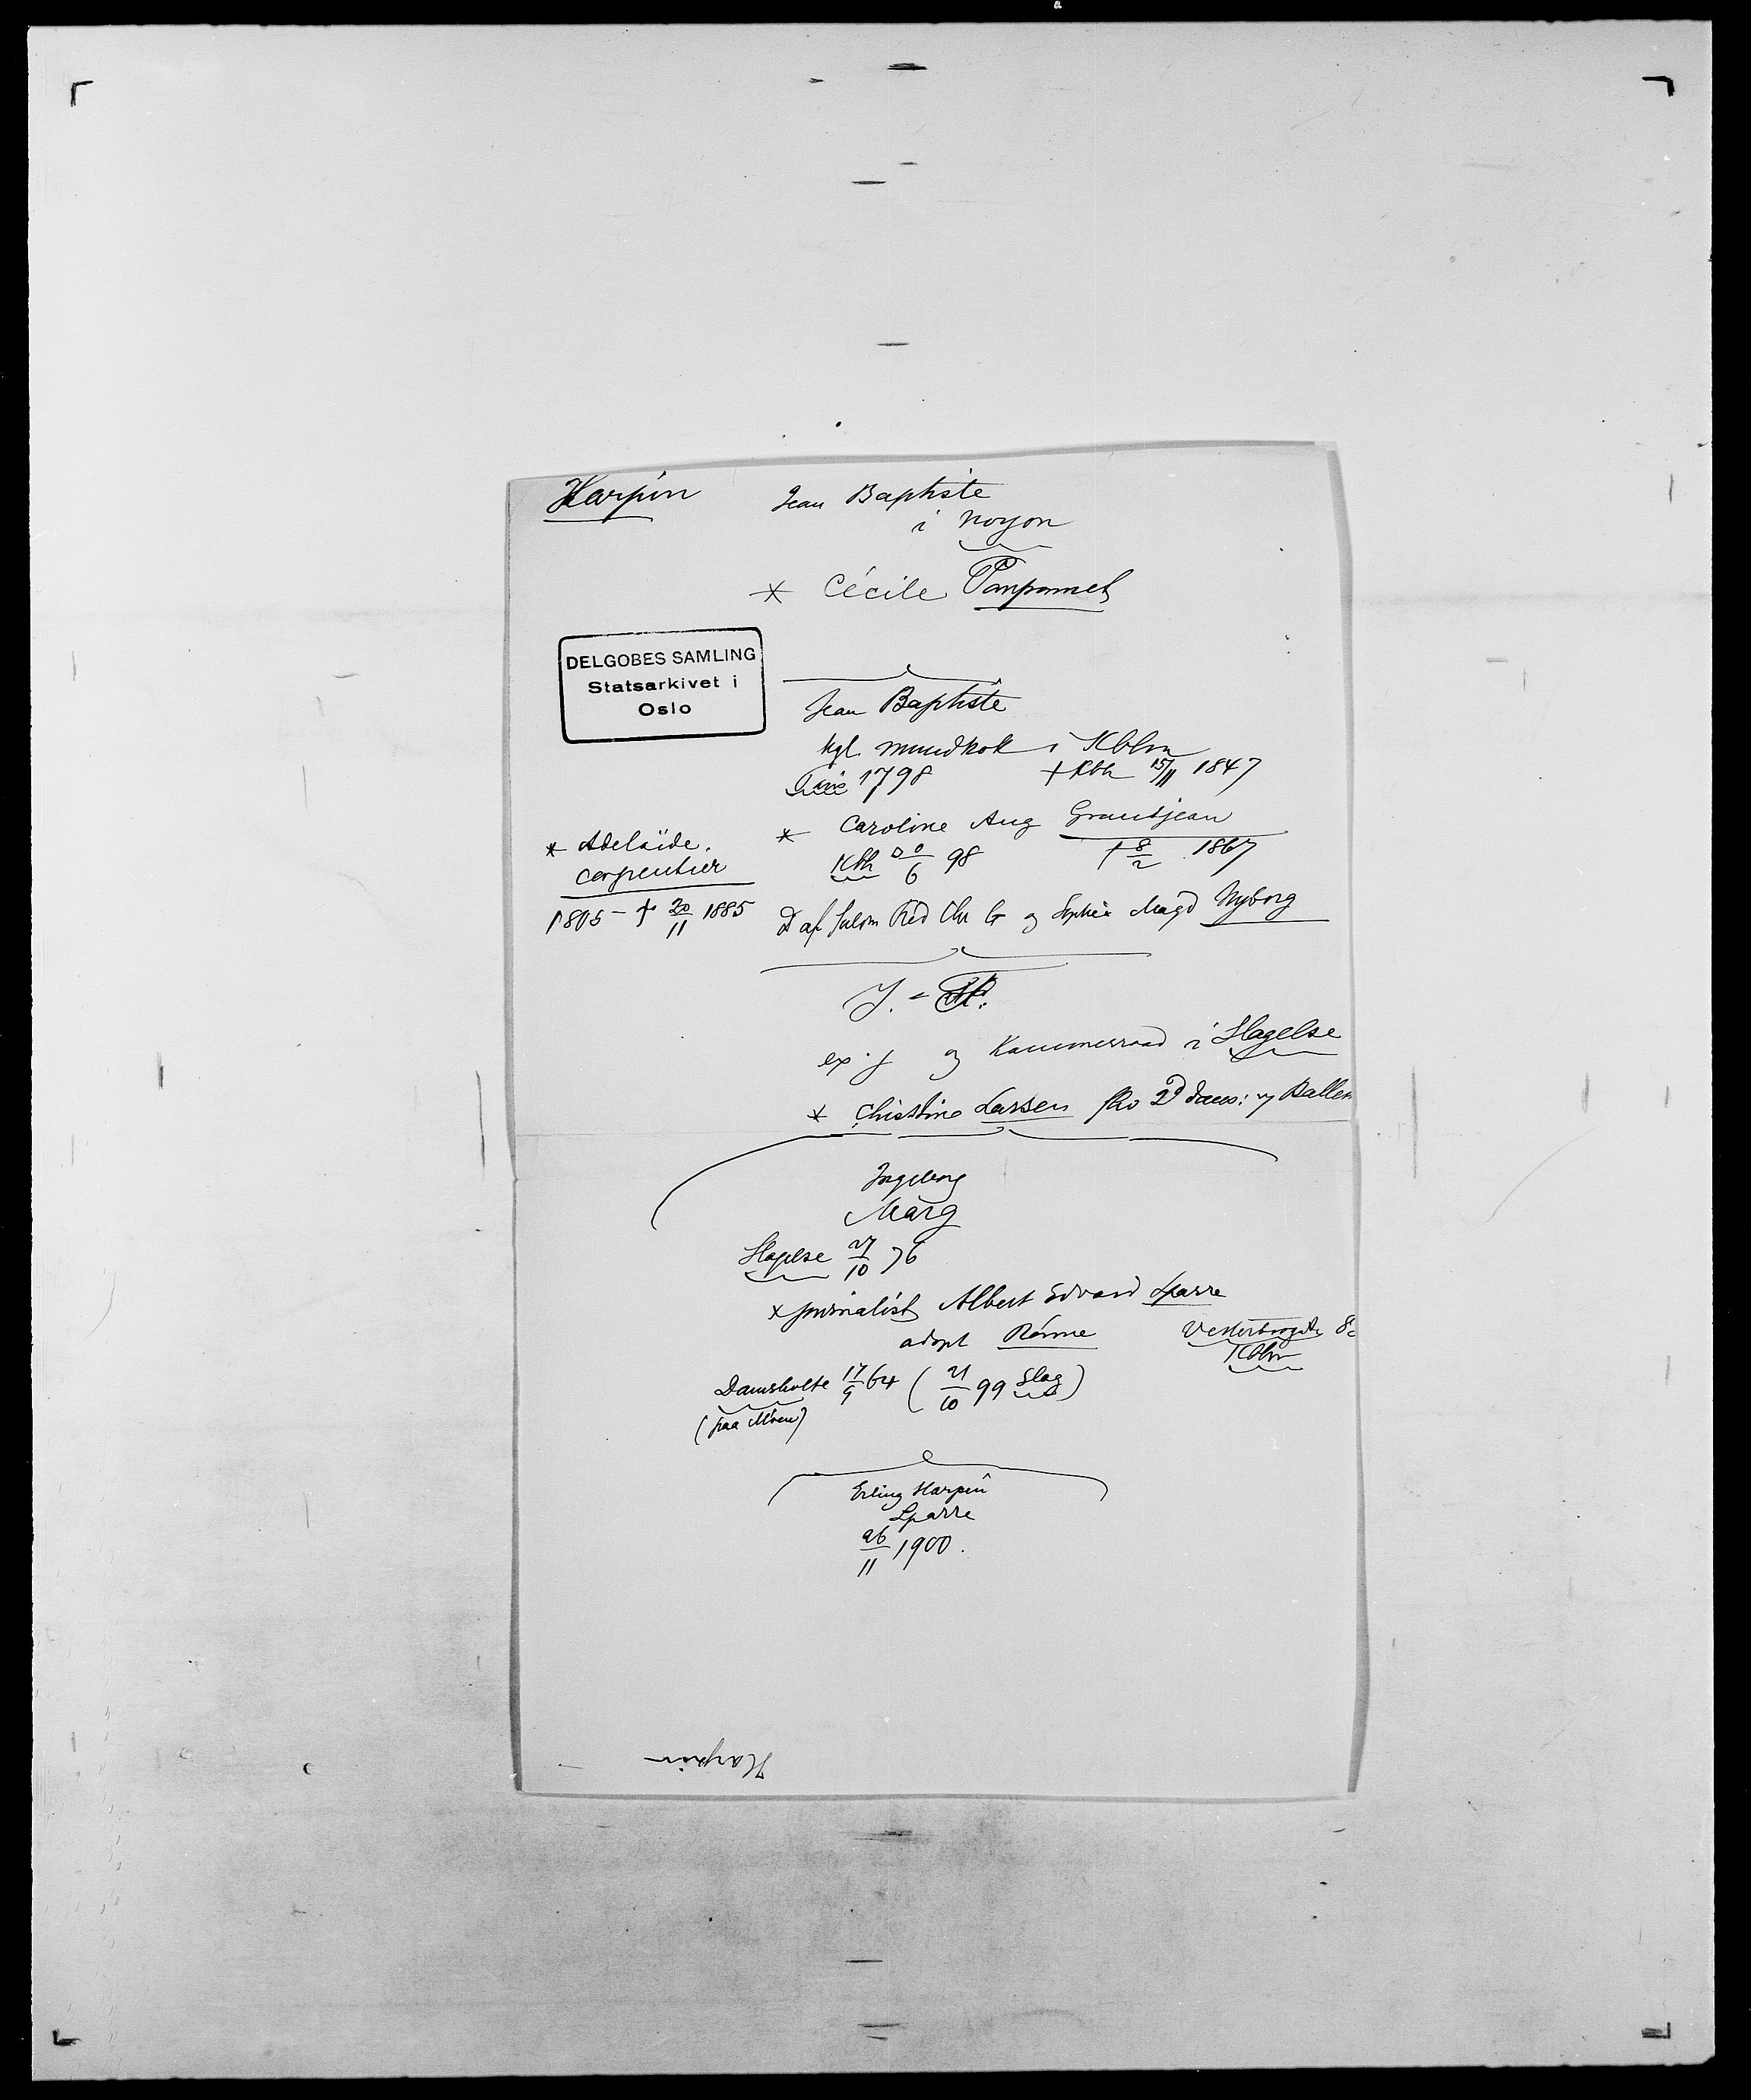 Harpin Jean Baptiste
i Noyon
* Cécile Pamponnet
DELGOBES SAMLING
Statsarkivet i
Oslo
Jean Baptiste
kgl. mundkok i Kbhvn
1798 † Kbh 15/11 1847
* Adelaïde.
Carpentier
1805 – † 20/11 1885
* Caroline Aug Grandjean
Kbh 6 98 † 8/2 1867
D af Chr G og Sophie Magd Nyborg
J. =
og Kammerraad i Slagelse
* Christine Larsen Ballen
Ingeborg
Marg
Slagelse 27/10 76
* journalist Albert Edvard Sparre
adopt Rönne Vesterbrogde
Kbhvn
Damsholte 17/9 64 ( 21/10 99 Slag )
(paa Möen)
Erling Harpin
Sparre
26/11 1900.
Harpin